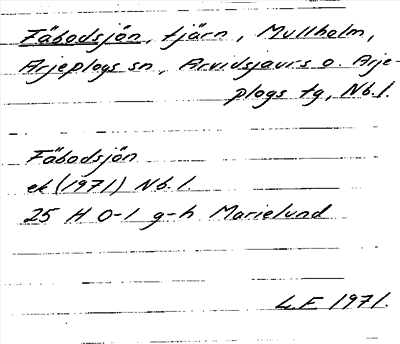 Fäbodsjön, tjärn, Mullholm,
Arjeplogs sn, Arvidsjaurs o. Arje-
plogs tg, Nb.l.
Fäbodsjön
ek (1971) Nb.l.
25 H 0-1 g-h Marielund
L.E. 1971.